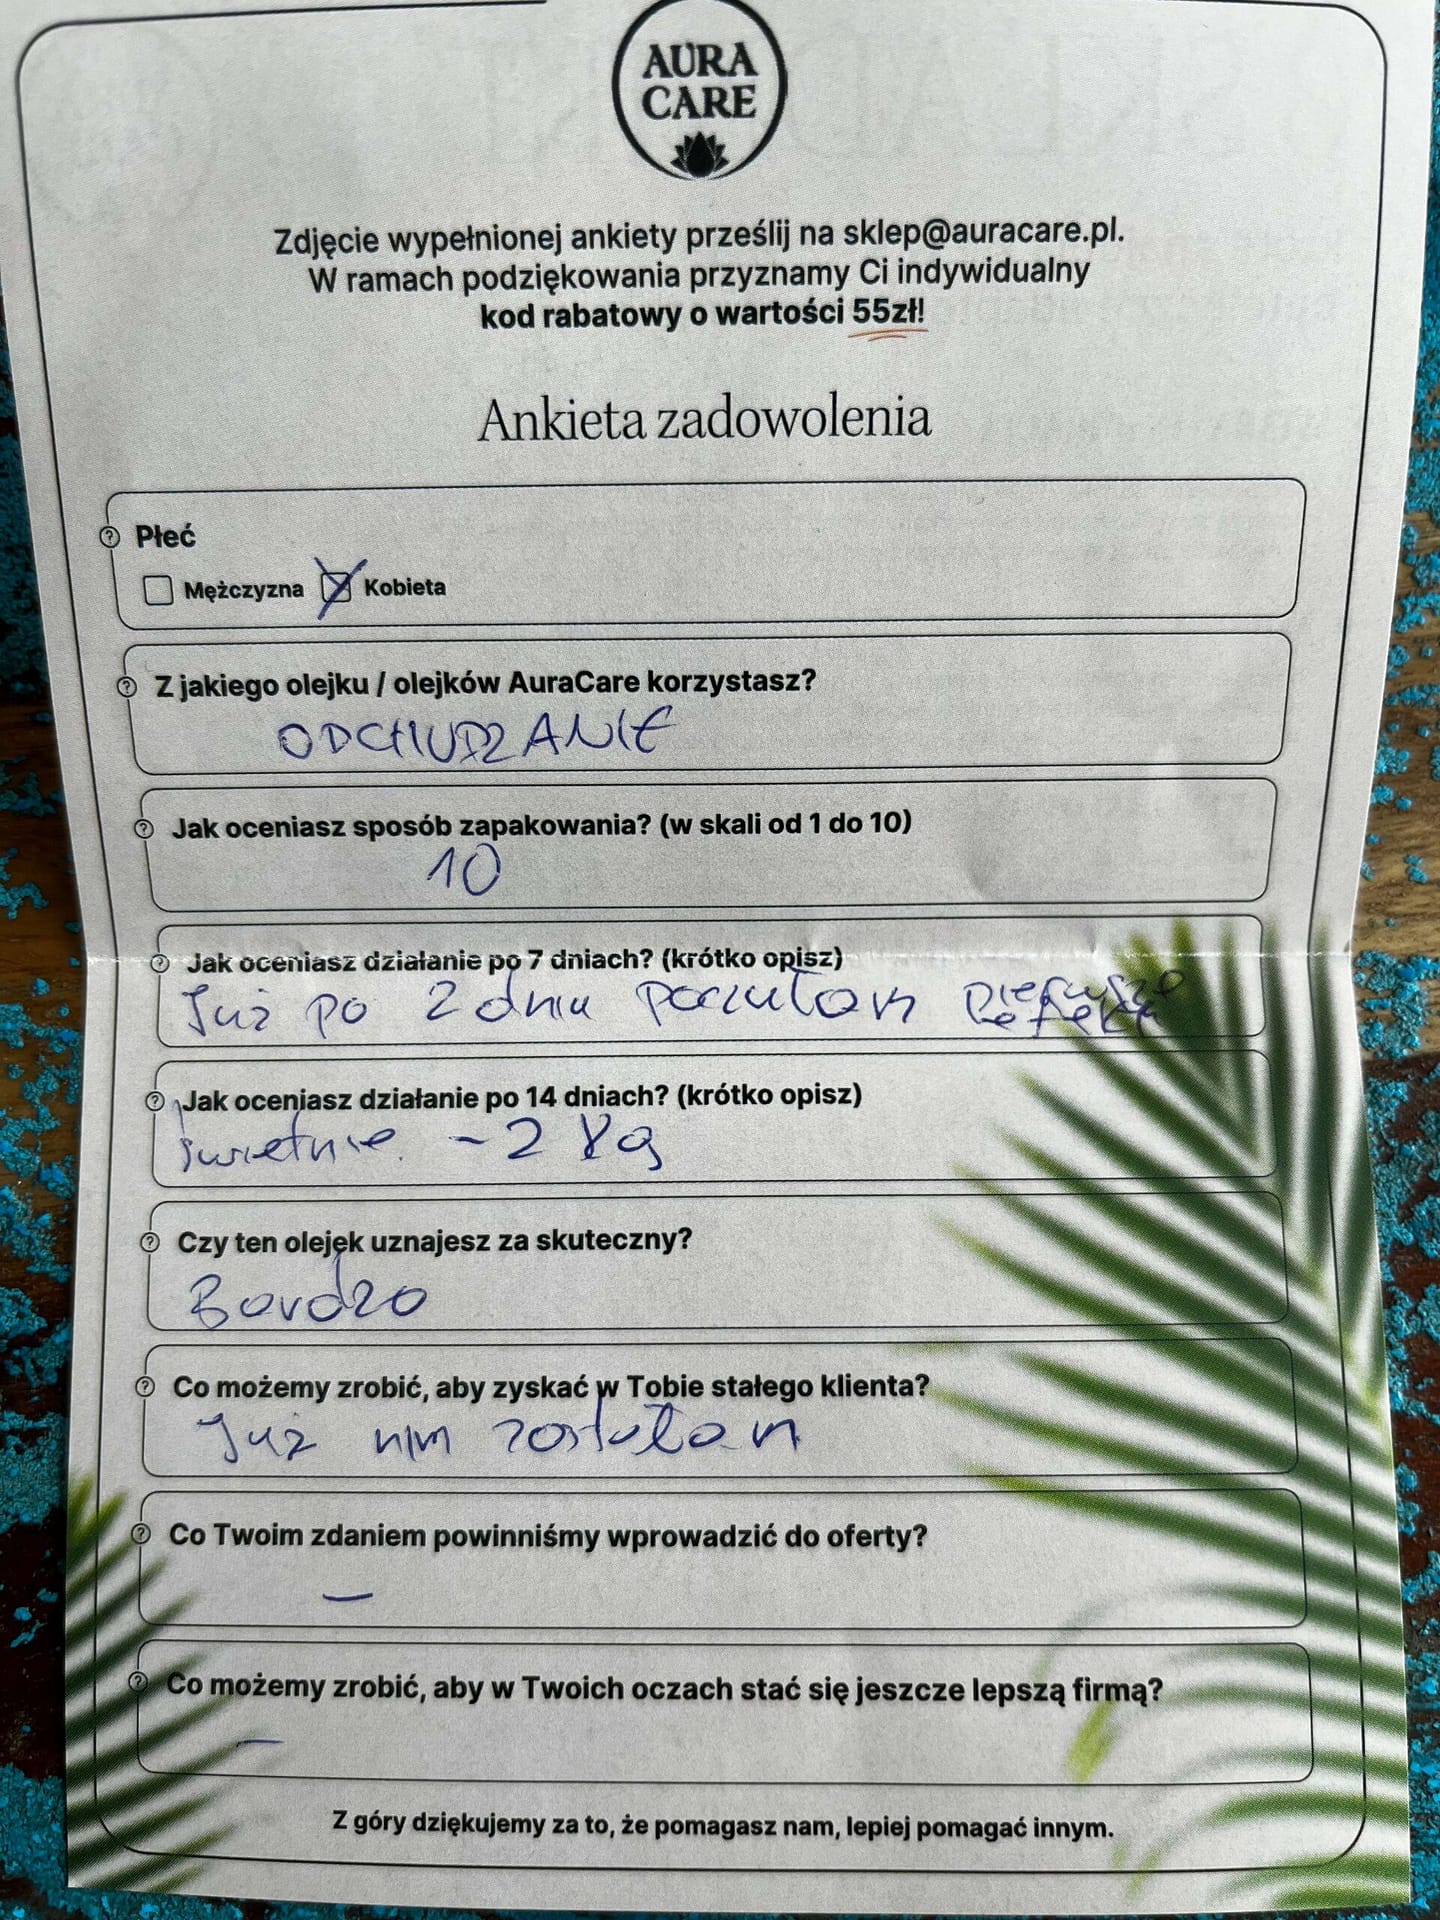 AURA
CARE
Zdjęcie wypełnionej ankiety prześlij na sklep@auracare.pl.
W ramach podziękowania przyznamy Ci indywidualny
kod rabatowy o wartości 55zł!
Ankieta zadowolenia
Płeć
Mężczyzna Kobieta
Z jakiego olejku / olejków AuraCare korzystasz?
ODCHUDZANIE
Jak oceniasz sposób zapakowania? (w skali od 1 do 10)
10
Jak oceniasz działanie po 7 dniach? (krótko opisz)
Już po 2 dniu poczułam pierwsze
efekty
Jak oceniasz działanie po 14 dniach? (krótko opisz)
świetnie. -2 kg
Czy ten olejek uznajesz za skuteczny?
Bardzo
Co możemy zrobić, aby zyskać w Tobie stałego klienta?
Już nim zostałam
Co Twoim zdaniem powinniśmy wprowadzić do oferty?
—
Co możemy zrobić, aby w Twoich oczach stać się jeszcze lepszą firmą?
—
Z góry dziękujemy za to, że pomagasz nam, lepiej pomagać innym.